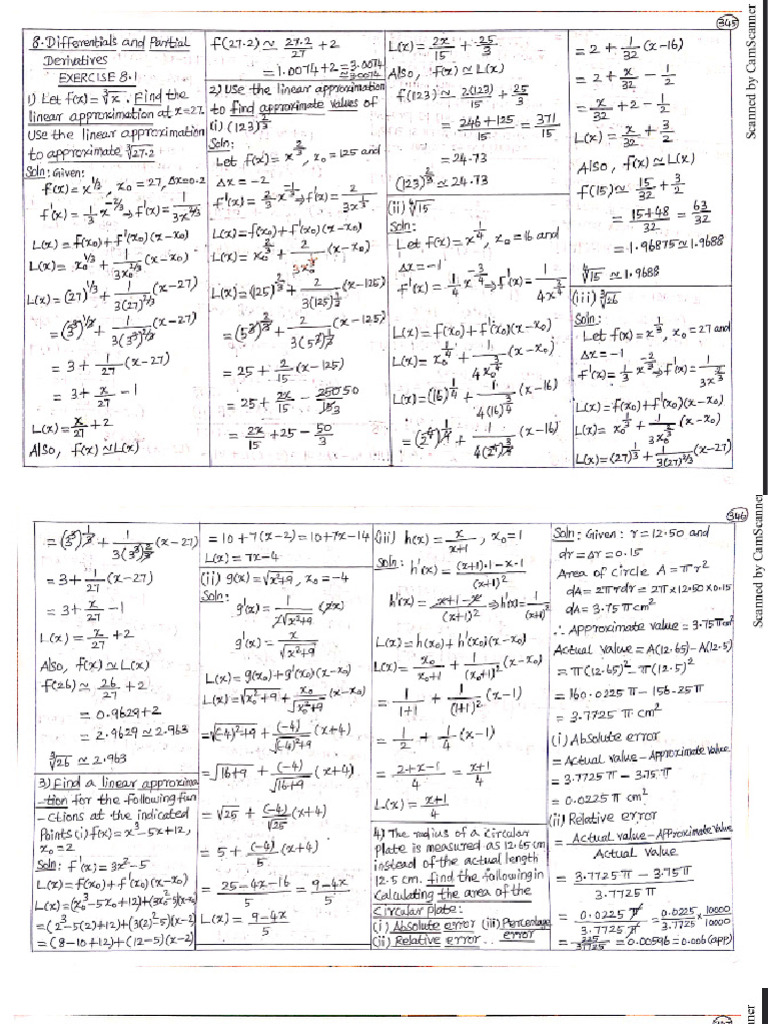 345
8. Differentials and Partial
Derivatives
EXERCISE 8.1
1) Let f(x) = ∛x. Find the
linear approximation at x=27.
Use the linear approximation
to approximate ∛27.2
Soln: Given:
f(x) = x^{1/3}, x₀ = 27, Δx=0.2
f'(x) = 1/3 x^{-2/3} ⇒ f'(x) = 1/(3x^{2/3})
L(x) = f(x₀) + f'(x₀)(x-x₀)
L(x) = x₀^{1/3} + 1/(3x₀^{2/3}) (x-x₀)
L(x) = (27)^{1/3} + 1/(3(27)^{2/3}) (x-27)
= (3³)^{1/3} + 1/(3(3³)^{2/3}) (x-27)
= 3 + 1/27 (x-27)
= 3 + x/27 - 1
L(x) = x/27 + 2
Also, f(x) ≃ L(x)
f(27.2) ≃ 27.2/27 + 2
= 1.0074+2 = 3.0074
≃ 3.0074
2) Use the linear approximation
to find approximate values of
(i) (123)^{2/3}
Soln:
Let f(x) = x^{2/3}, x₀ = 125 and
Δx = -2
f'(x) = 2/3 x^{-1/3} ⇒ f'(x) = 2/(3x^{1/3})
L(x) = f(x₀) + f'(x₀)(x-x₀)
L(x) = x₀^{2/3} + 2/(3x₀^{1/3}) (x-x₀)
L(x) = (125)^{2/3} + 2/(3(125)^{1/3}) (x-125)
= (5³)^{2/3} + 2/(3(5³)^{1/3}) (x-125)
= 25 + 2/15 (x-125)
= 25 + 2x/15 - 250 50/15 3
= 2x/15 + 25 - 50/3
L(x) = 2x/15 + 25/3
Also, f(x) ≃ L(x)
f(123) ≃ 2(123)/15 + 25/3
= (246+125)/15 = 371/15
= 24.73
(123)^{2/3} ≃ 24.73
(ii) ∜15
Soln:
Let f(x) = x^{1/4}, x₀ = 16 and
Δx = -1
f'(x) = 1/4 x^{-3/4} ⇒ f'(x) = 1/(4x^{3/4})
L(x) = f(x₀) + f'(x₀)(x-x₀)
L(x) = x₀^{1/4} + 1/(4x₀^{3/4}) (x-x₀)
L(x) = (16)^{1/4} + 1/(4(16)^{3/4}) (x-16)
= (2⁴)^{1/4} + 1/(4(2⁴)^{3/4}) (x-16)
= 2 + 1/32 (x-16)
= 2 + x/32 - 1/2
= x/32 + 2 - 1/2
L(x) = x/32 + 3/2
Also, f(x) ≃ L(x)
f(15) ≃ 15/32 + 3/2
= (15+48)/32 = 63/32
= 1.96875 ≃ 1.9688
∜15 ≃ 1.9688
(iii) ∛26
Soln:
Let f(x) = x^{1/3}, x₀ = 27 and
Δx = -1
f'(x) = 1/3 x^{-2/3} ⇒ f'(x) = 1/(3x^{2/3})
L(x) = f(x₀) + f'(x₀)(x-x₀)
L(x) = x₀^{1/3} + 1/(3x₀^{2/3}) (x-x₀)
L(x) = (27)^{1/3} + 1/(3(27)^{2/3}) (x-27)
Scanned by CamScanner
346
= (3³)^{1/3} + 1/(3(3³)^{2/3}) (x-27)
= 3 + 1/27 (x-27)
= 3 + x/27 - 1
L(x) = x/27 + 2
Also, f(x) ≃ L(x)
f(26) ≃ 26/27 + 2
= 0.9629+2
= 2.9629 ≃ 2.963
∛26 ≃ 2.963
3) Find a linear approxima
-tion for the following fun
-ctions at the indicated
Points (i) f(x) = x³-5x+12,
x₀ = 2
Soln: f'(x) = 3x²-5
L(x) = f(x₀) + f'(x₀)(x-x₀)
L(x) = (x₀³-5x₀+12)+(3x₀²-5)(x-x₀)
= (2³-5(2)+12)+(3(2)²-5)(x-2)
= (8-10+12)+(12-5)(x-2)
= 10+7(x-2) = 10+7x-14
L(x) = 7x-4
(ii) g(x) = √(x²+9), x₀ = -4
Soln:
g'(x) = 1/(2√(x²+9)) (2x)
g'(x) = x/√(x²+9)
L(x) = g(x₀) + g'(x₀)(x-x₀)
L(x) = √(x₀²+9) + x₀/√(x₀²+9) (x-x₀)
= √((-4)²+9) + (-4)/√((-4)²+9) (x+4)
= √(16+9) + (-4)/√(16+9) (x+4)
= √25 + (-4)/√25 (x+4)
= 5 + (-4)/5 (x+4)
= (25-4x-16)/5 = (9-4x)/5
L(x) = (9-4x)/5
(iii) h(x) = x/(x+1), x₀=1
Soln: h'(x) = ((x+1)·1-x·1)/(x+1)²
h'(x) = (x+1-x)/(x+1)² ⇒ h'(x) = 1/(x+1)²
L(x) = h(x₀) + h'(x₀)(x-x₀)
L(x) = x₀/(x₀+1) + 1/(x₀+1)² (x-x₀)
= 1/(1+1) + 1/(1+1)² (x-1)
= 1/2 + 1/4 (x-1)
= (2+x-1)/4 = (x+1)/4
L(x) = (x+1)/4
4) The radius of a circular
plate is measured as 12.65 cm
instead of the actual length
12.5 cm. find the following in
calculating the area of the
circular plate:
(i) Absolute error (iii) Percentage
(ii) Relative error .. error
Soln: Given: r = 12.50 and
dr = Δr = 0.15
Area of Circle A = πr²
dA = 2πrdr = 2π×12.50×0.15
dA = 3.75π cm²
∴ Approximate value = 3.75π cm²
Actual value = A(12.65) - A(12.5)
= π(12.65)² - π(12.5)²
= 160.0225π - 156.25π
= 3.7725π cm²
(i) Absolute error
= Actual value - Approximate value
= 3.7725π - 3.75π
= 0.0225π cm²
(ii) Relative error
= (Actual value - Approximate value)/Actual value
= (3.7725π - 3.75π)/3.7725π
= 0.0225π/3.7725π = 0.0225/3.7725 × 10000/10000
= 225/37725 = 0.00596 = 0.006 (app)
Scanned by CamScanner